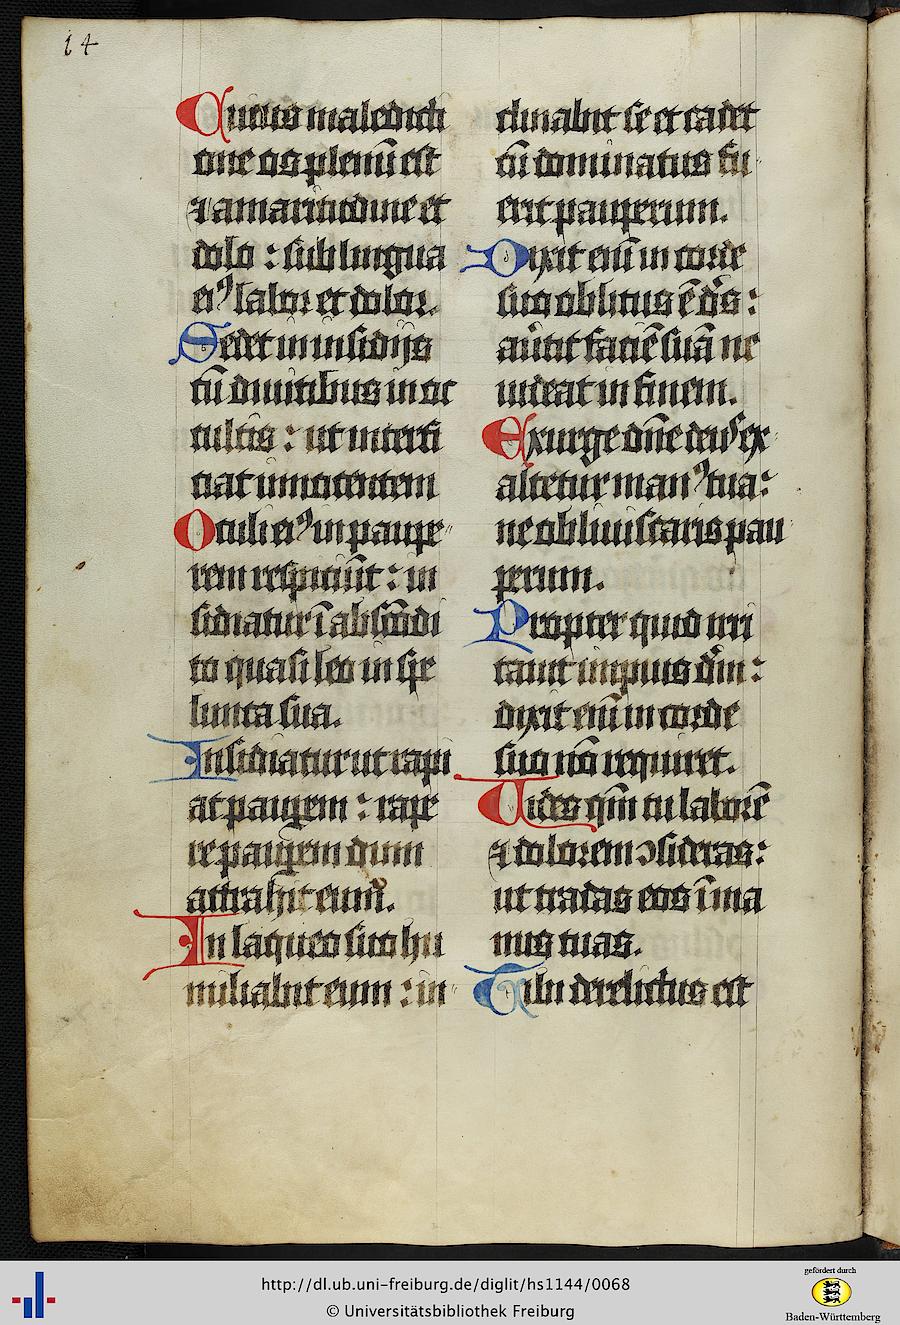 14
Cuius maledicti
one os plenū est
⁊ amaritudine et
dolo : sub lingua
eiꝰ labor et dolor.
Sedet in insidijs
cū diuitibus in oc
cultis : ut interfi
ciat innocentem
Oculi eiꝰ in paupe
rem respiciūt : in
sidiatur ī abscōdi
to quasi leo in spe
lunca sua.
Insidiatur ut rapi
at pauꝑem : rape
re pauꝑem dum
attrahit eum.
In laqueo suo hu
miliabit eum : in
clinabit se et cadet
cū dominatus fu
erit pauperum.
Dixit enī in corde
suo oblitus ē dˢ :
auˀtit faciē suā ne
uideat in finem.
Exurge dn̄e deus ex
altetur manꝰ tua :
ne obliuiscaris pau
perum.
Propter quid irri
tauit impius dm̄ :
dixit enī in corde
suo nō requiret.
Uides qm̄ tu laborē
⁊ dolorem ↄsideras :
ut tradas eos ī ma
nus tuas.
Tibi derelictus est
http://dl.ub.uni-freiburg.de/diglit/hs1144/0068
© Universitätsbibliothek Freiburg
gefördert durch
Baden-Württemberg